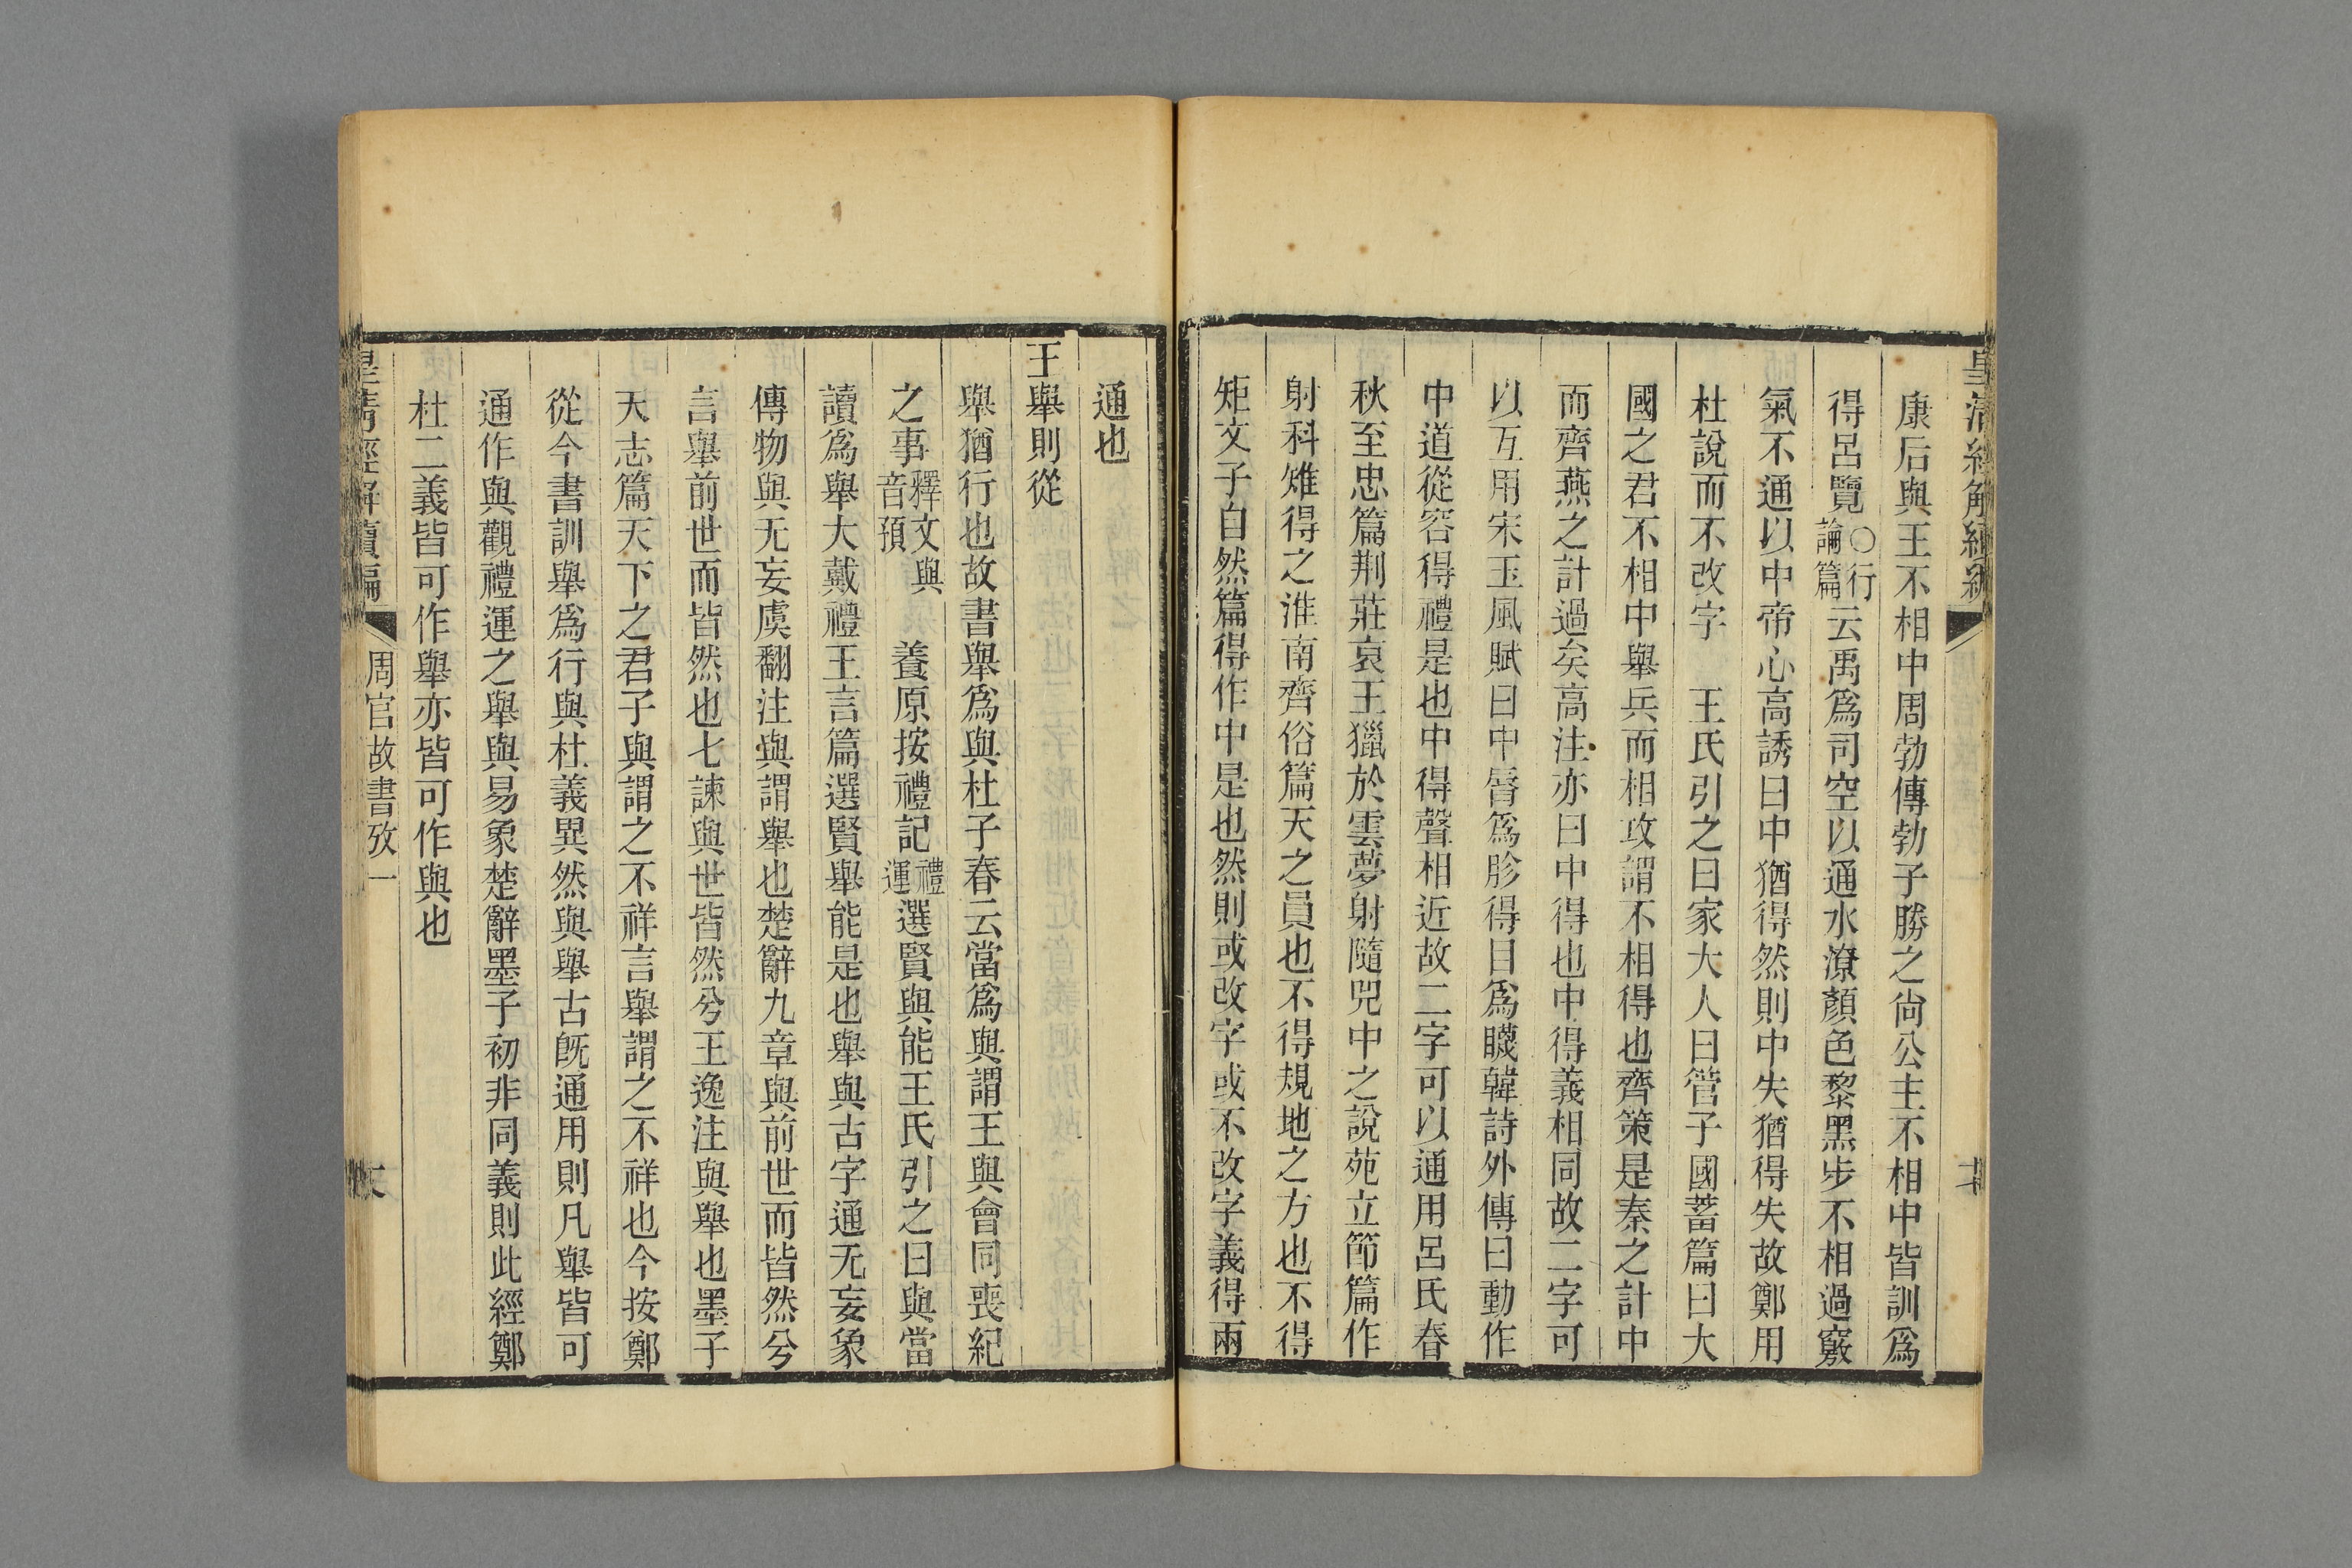 康后與王不相中周勃傳勃子勝之尙公主不相中皆訓爲
得呂覽〇行論篇云禹爲司空以通水潦顏色黎黑步不相過竅
氣不通以中帝心高誘曰中猶得然則中失猶得失故鄭用
杜說而不改字　王氏引之曰家大人曰管子國蓄篇曰大
國之君不相中舉兵而相攻謂不相得也齊策是秦之計中
而齊燕之計過矣高注亦曰中得也中得義相同故二字可
以互用宋玉風賦曰中脣爲胗得目爲䁾韓詩外傳曰動作
中道從容得禮是也中得聲相近故二字可以通用呂氏春
秋至忠篇荆莊哀王獵於雲夢射隨兕中之說苑立節篇作
射科雉得之淮南齊俗篇天之員也不得規地之方也不得
矩文子自然篇得作中是也然則或改字或不改字義得兩
通也
王舉則從
舉猶行也故書舉爲與杜子春云當爲與謂王與會同喪紀
之事釋文與音預　養原按禮記禮運選賢與能王氏引之曰與當
讀爲舉大戴禮王言篇選賢舉能是也舉與古字通无妄象
傳物與无妄虞翻注與謂舉也楚辭九章與前世而皆然兮
言舉前世而皆然也七諫與世皆然兮王逸注與舉也墨子
天志篇天下之君子與謂之不祥言舉謂之不祥也今按鄭
從今書訓舉爲行與杜義異然與舉古旣通用則凡舉皆可
通作與觀禮運之舉與易象楚辭墨子初非同義則此經鄭
杜二義皆可作舉亦皆可作與也
皇淸經解續編　周官故書攷一